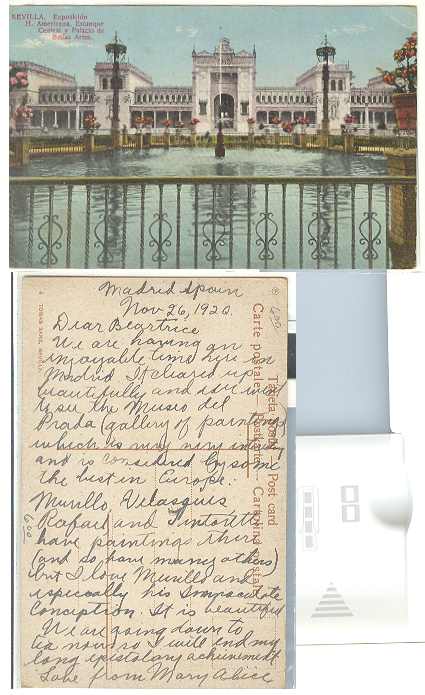 SEVILLA. Exposición
H. Americana. Estanque
Central y Palacio de
Bellas Artes.
Madrid Spain
Nov 26, 1920.
Dear Beartrice
We are having an
injoyable time here in
Madrid It cleared up
beautifully and we went
to see the Museo del
Prada (gallery of paintings)
which is very very
and is considered by some
the best in Europe.
Murillo, Velasques,
Rafael and Tintoretto
have paintings there
(and so have many others)
but I love Murillo and
especially his
Conception. It is beautiful
We are going down to
tea now so I will end my
long epistolary achievement
Love from Mary Alice
Tarjeta postal — Post card
Carte postale — Postkarte — Cartolina Postal
600